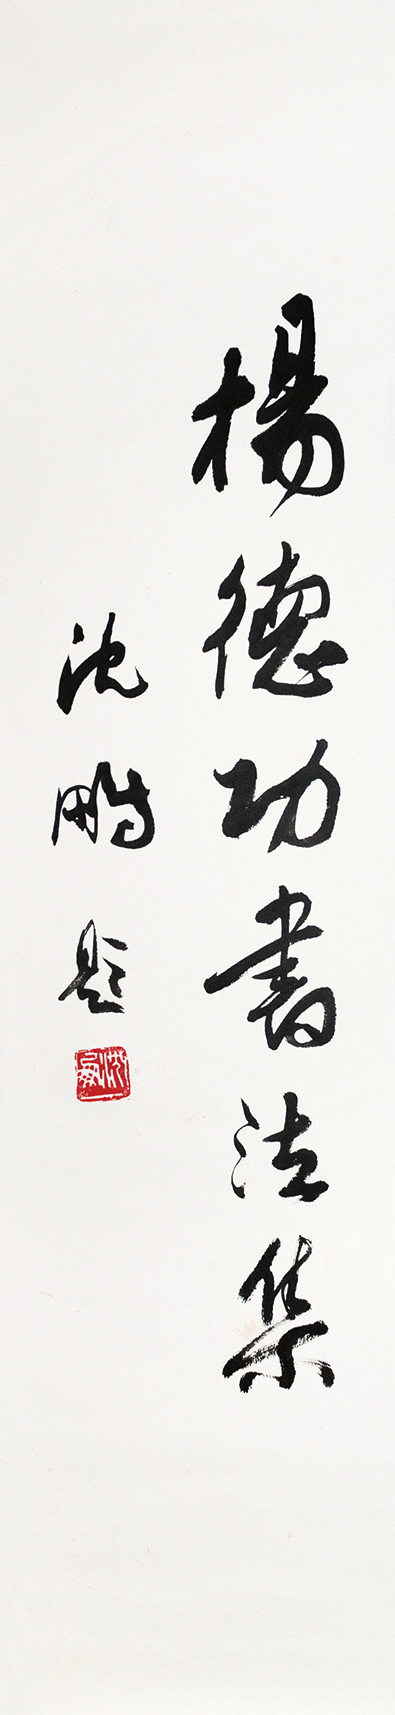 楊德功書法集
沈鵬題
沈鵬